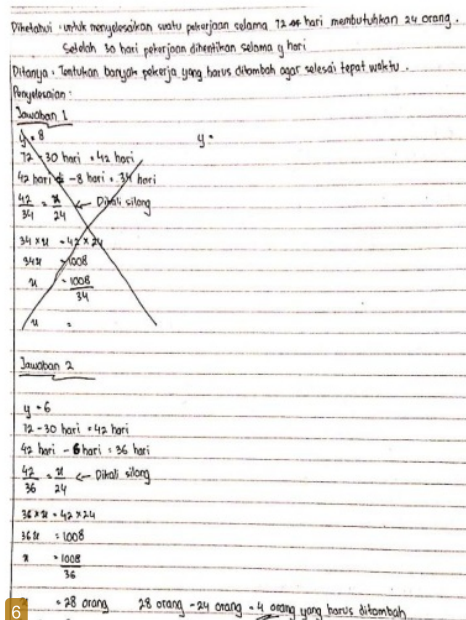 Diketahui : untuk menyelesaikan suatu pekerjaan selama 72 hari membutuhkan 24 orang.
Setelah 30 hari pekerjaan dihentikan selama y hari
Ditanya : Tentukan banyak pekerja yang harus ditambah agar selesai tepat waktu.
Penyelesaian :
Jawaban 1
y = 8 y =
72 - 30 hari = 42 hari
42 hari - 8 hari = 34 hari
42/34 = x/24 ← Dikali silang
34 × x = 42 × 24
34x = 1008
x = 1008/34
x =
Jawaban 2
y = 6
72 - 30 hari = 42 hari
42 hari - 6 hari = 36 hari
42/36 = x/24 ← Dikali silang
36 × x = 42 × 24
36x = 1008
x = 1008/36
= 28 orang 28 orang - 24 orang = 4 orang yang harus ditambah
6